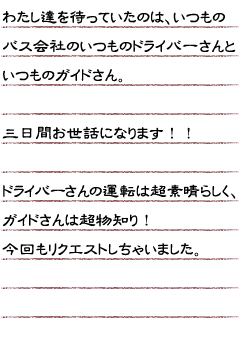 わたし達を待っていたのは、いつもの
バス会社のいつものドライバーさんと
いつものガイドさん。
三日間お世話になります！！
ドライバーさんの運転は超素晴らしく、
ガイドさんは超物知り！
今回もリクエストしちゃいました。